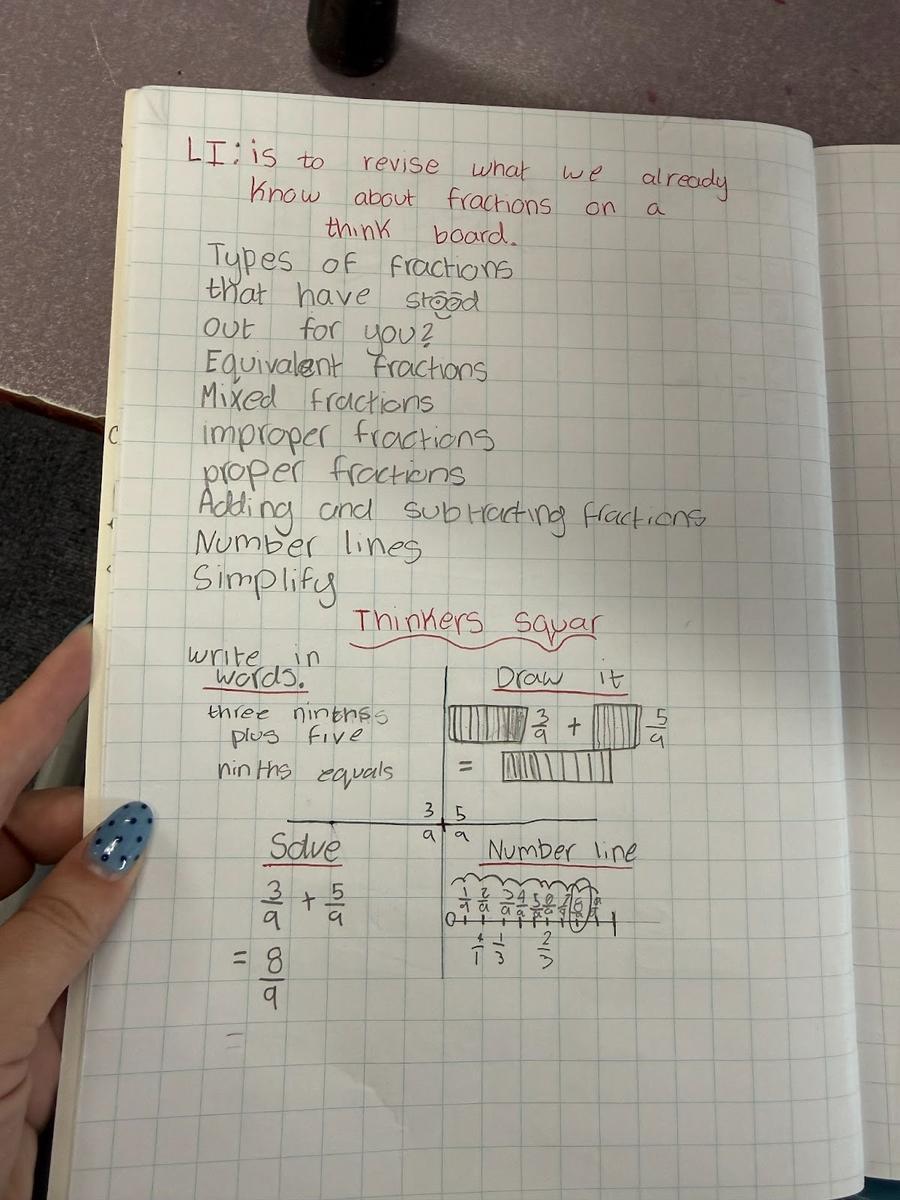 LI: is to revise what we already
know about fractions on a
think board.
Types of fractions
that have stood
out for you?
Equivalent fractions
Mixed fractions
improper fractions
proper fractions
Adding and subtracting fractions
Number lines
Simplify
Thinkers Squar
write in
words.
three ninthss
plus five
ninths equals
Draw it
3/9 + 5/9
=
3/9 5/9
Solve
3/9 + 5/9
= 8/9
=
Number line
1/9 2/9 3/9 4/9 5/9 6/9 7/9 8/9 9/9
0
1/3 2/3